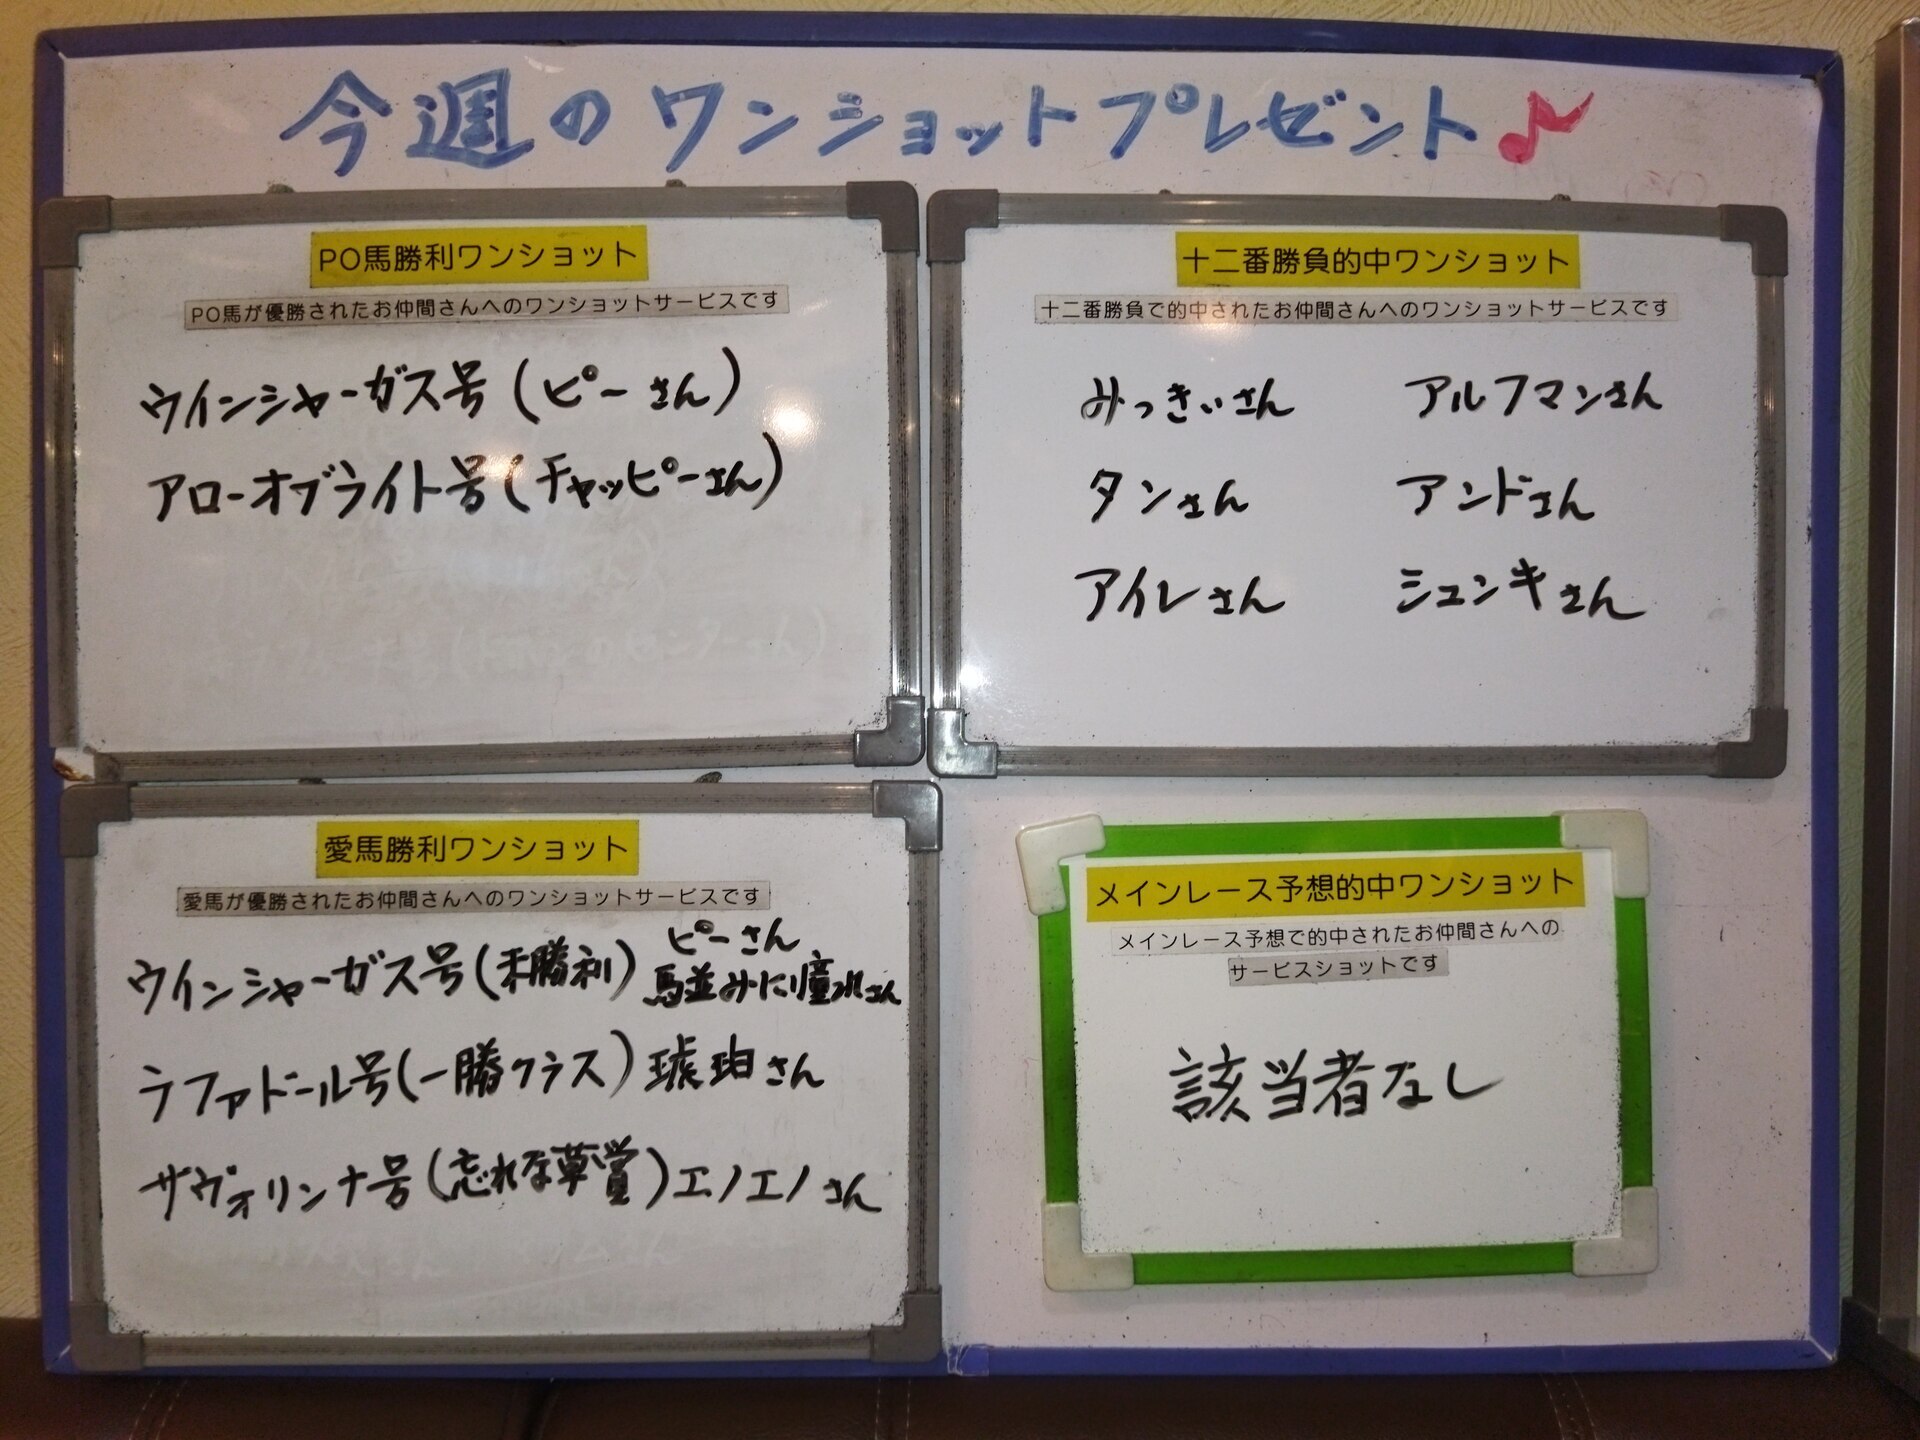 今週のワンショットプレゼント♪
PO馬勝利ワンショット
PO馬が優勝されたお仲間さんへのワンショットサービスです
ウインシャーガス号(ピーさん)
アローオブライト号(チャッピーさん)
十二番勝負的中ワンショット
十二番勝負で的中されたお仲間さんへのワンショットサービスです
みっきぃさん アルフマンさん
タンさん アンドさん
アイレさん シュンキさん
愛馬勝利ワンショット
愛馬が優勝されたお仲間さんへのワンショットサービスです
ピーさん
ウインシャーガス号(未勝利) 馬並みに憧れさん
ラファドール号(一勝クラス)琥珀さん
サヴォリンナ号(忘れな草賞)エノエノさん
メインレース予想的中ワンショット
メインレース予想で的中されたお仲間さんへの
サービスショットです
該当者なし